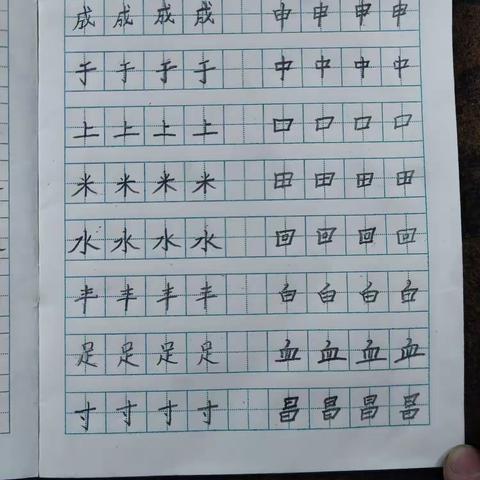 成成成成 申申申申
于于于于 中中中中
上上上上 口口口口
米米米米 田田田田
水水水水 回回回回
丰丰丰丰 白白白白
足足足足 血血血血
寸寸寸寸 昌昌昌昌